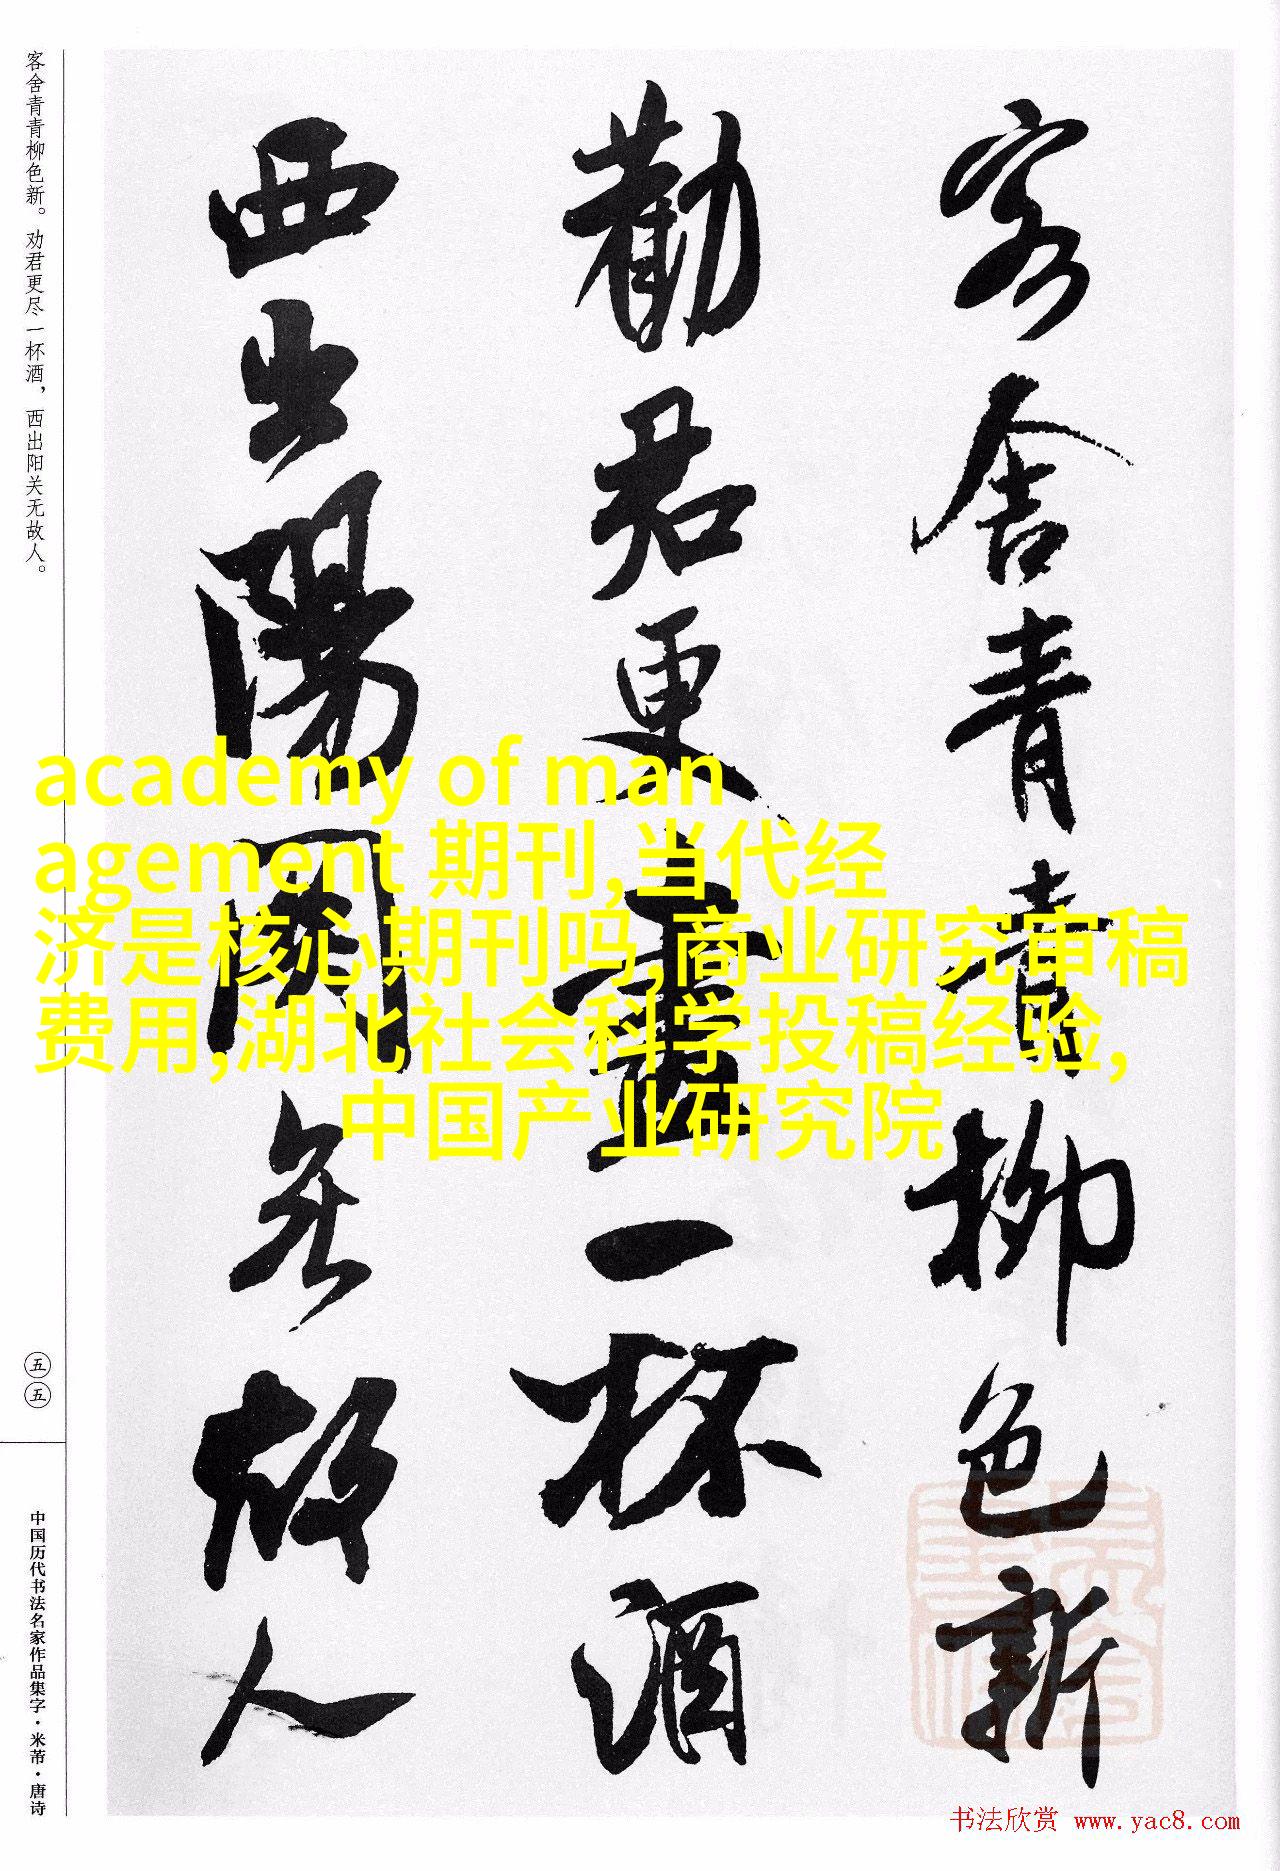 客舍青青柳色新
勸君更盡一杯酒
西出陽關無故人
客舍青青柳色新。劝君更尽一杯酒，西出阳关无故人。
五五
中国历代书法名家作品集字·米芾·唐诗
academy of man
agement 期刊,当代经
济是核心期刊吗,商业研究审稿
费用,湖北社会科学投稿经验,
中国产业研究院
书法欣赏 www.yac8.com